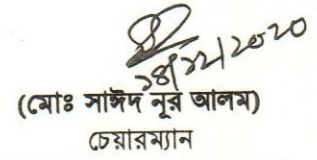 ১৪/১২/২০২০
(মোঃ সাঈদ নূর আলম)
চেয়ারম্যান